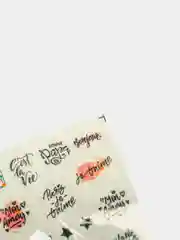 C'est
la
Vie
Bonjour
je t'aime
Paris
je
t'aime
Mon
amour
Mon
amour